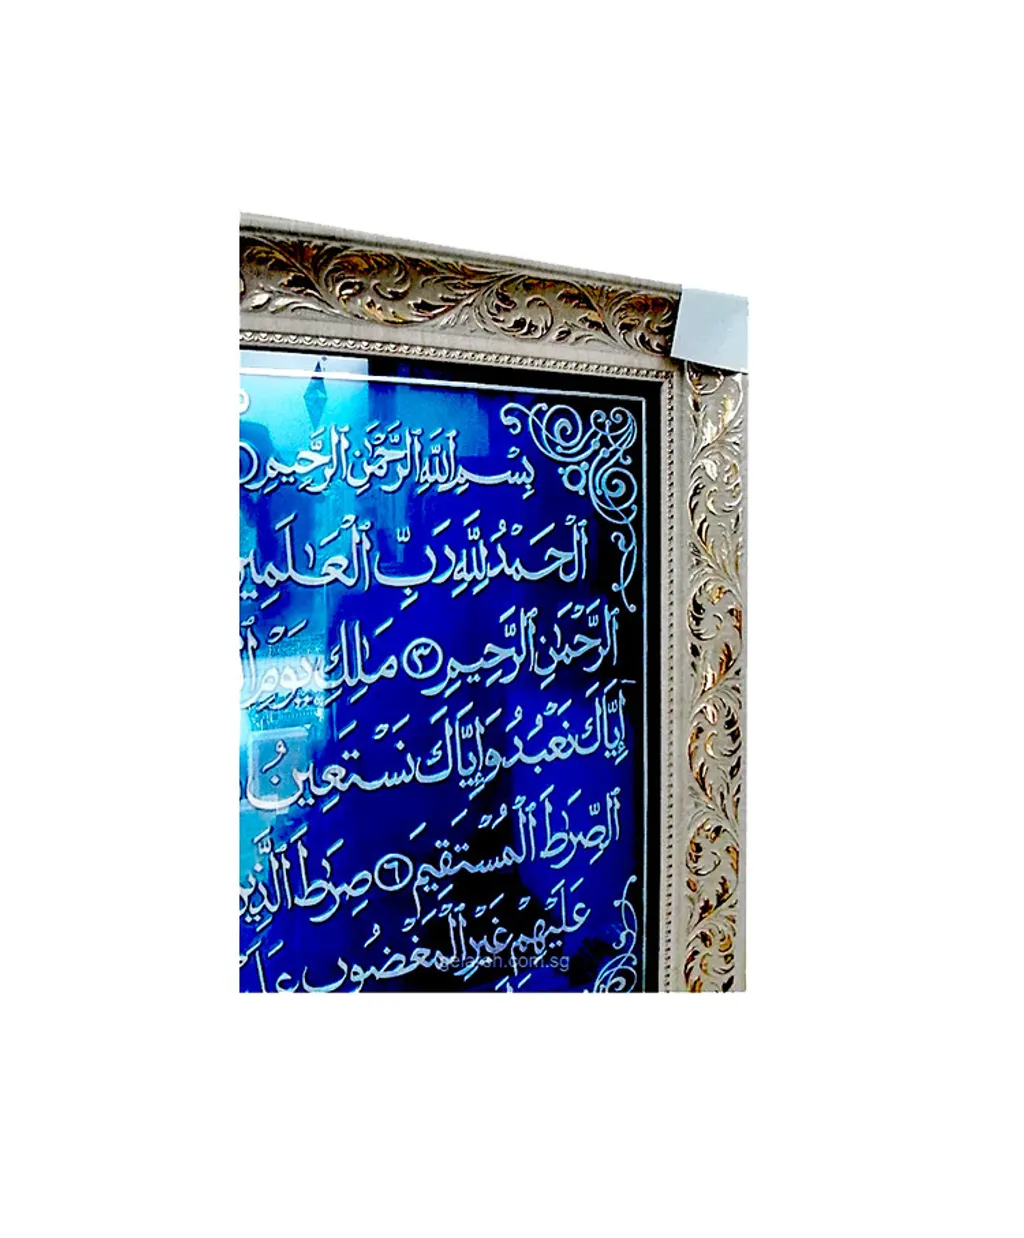 بِسْمِ ٱللَّهِ ٱلرَّحْمَٰنِ ٱلرَّحِيمِ
ٱلْحَمْدُ لِلَّهِ رَبِّ ٱلْعَٰلَمِين
ٱلرَّحْمَٰنِ ٱلرَّحِيمِ ٣ مَٰلِكِ يَوْمِ
إِيَّاكَ نَعْبُدُ وَإِيَّاكَ نَسْتَعِينُ
ٱلصِّرَٰطَ ٱلْمُسْتَقِيمَ ٦ صِرَٰطَ ٱلَّذِين
عَلَيْهِمْ غَيْرِ ٱلْمَغْضُوبِ عَلَي